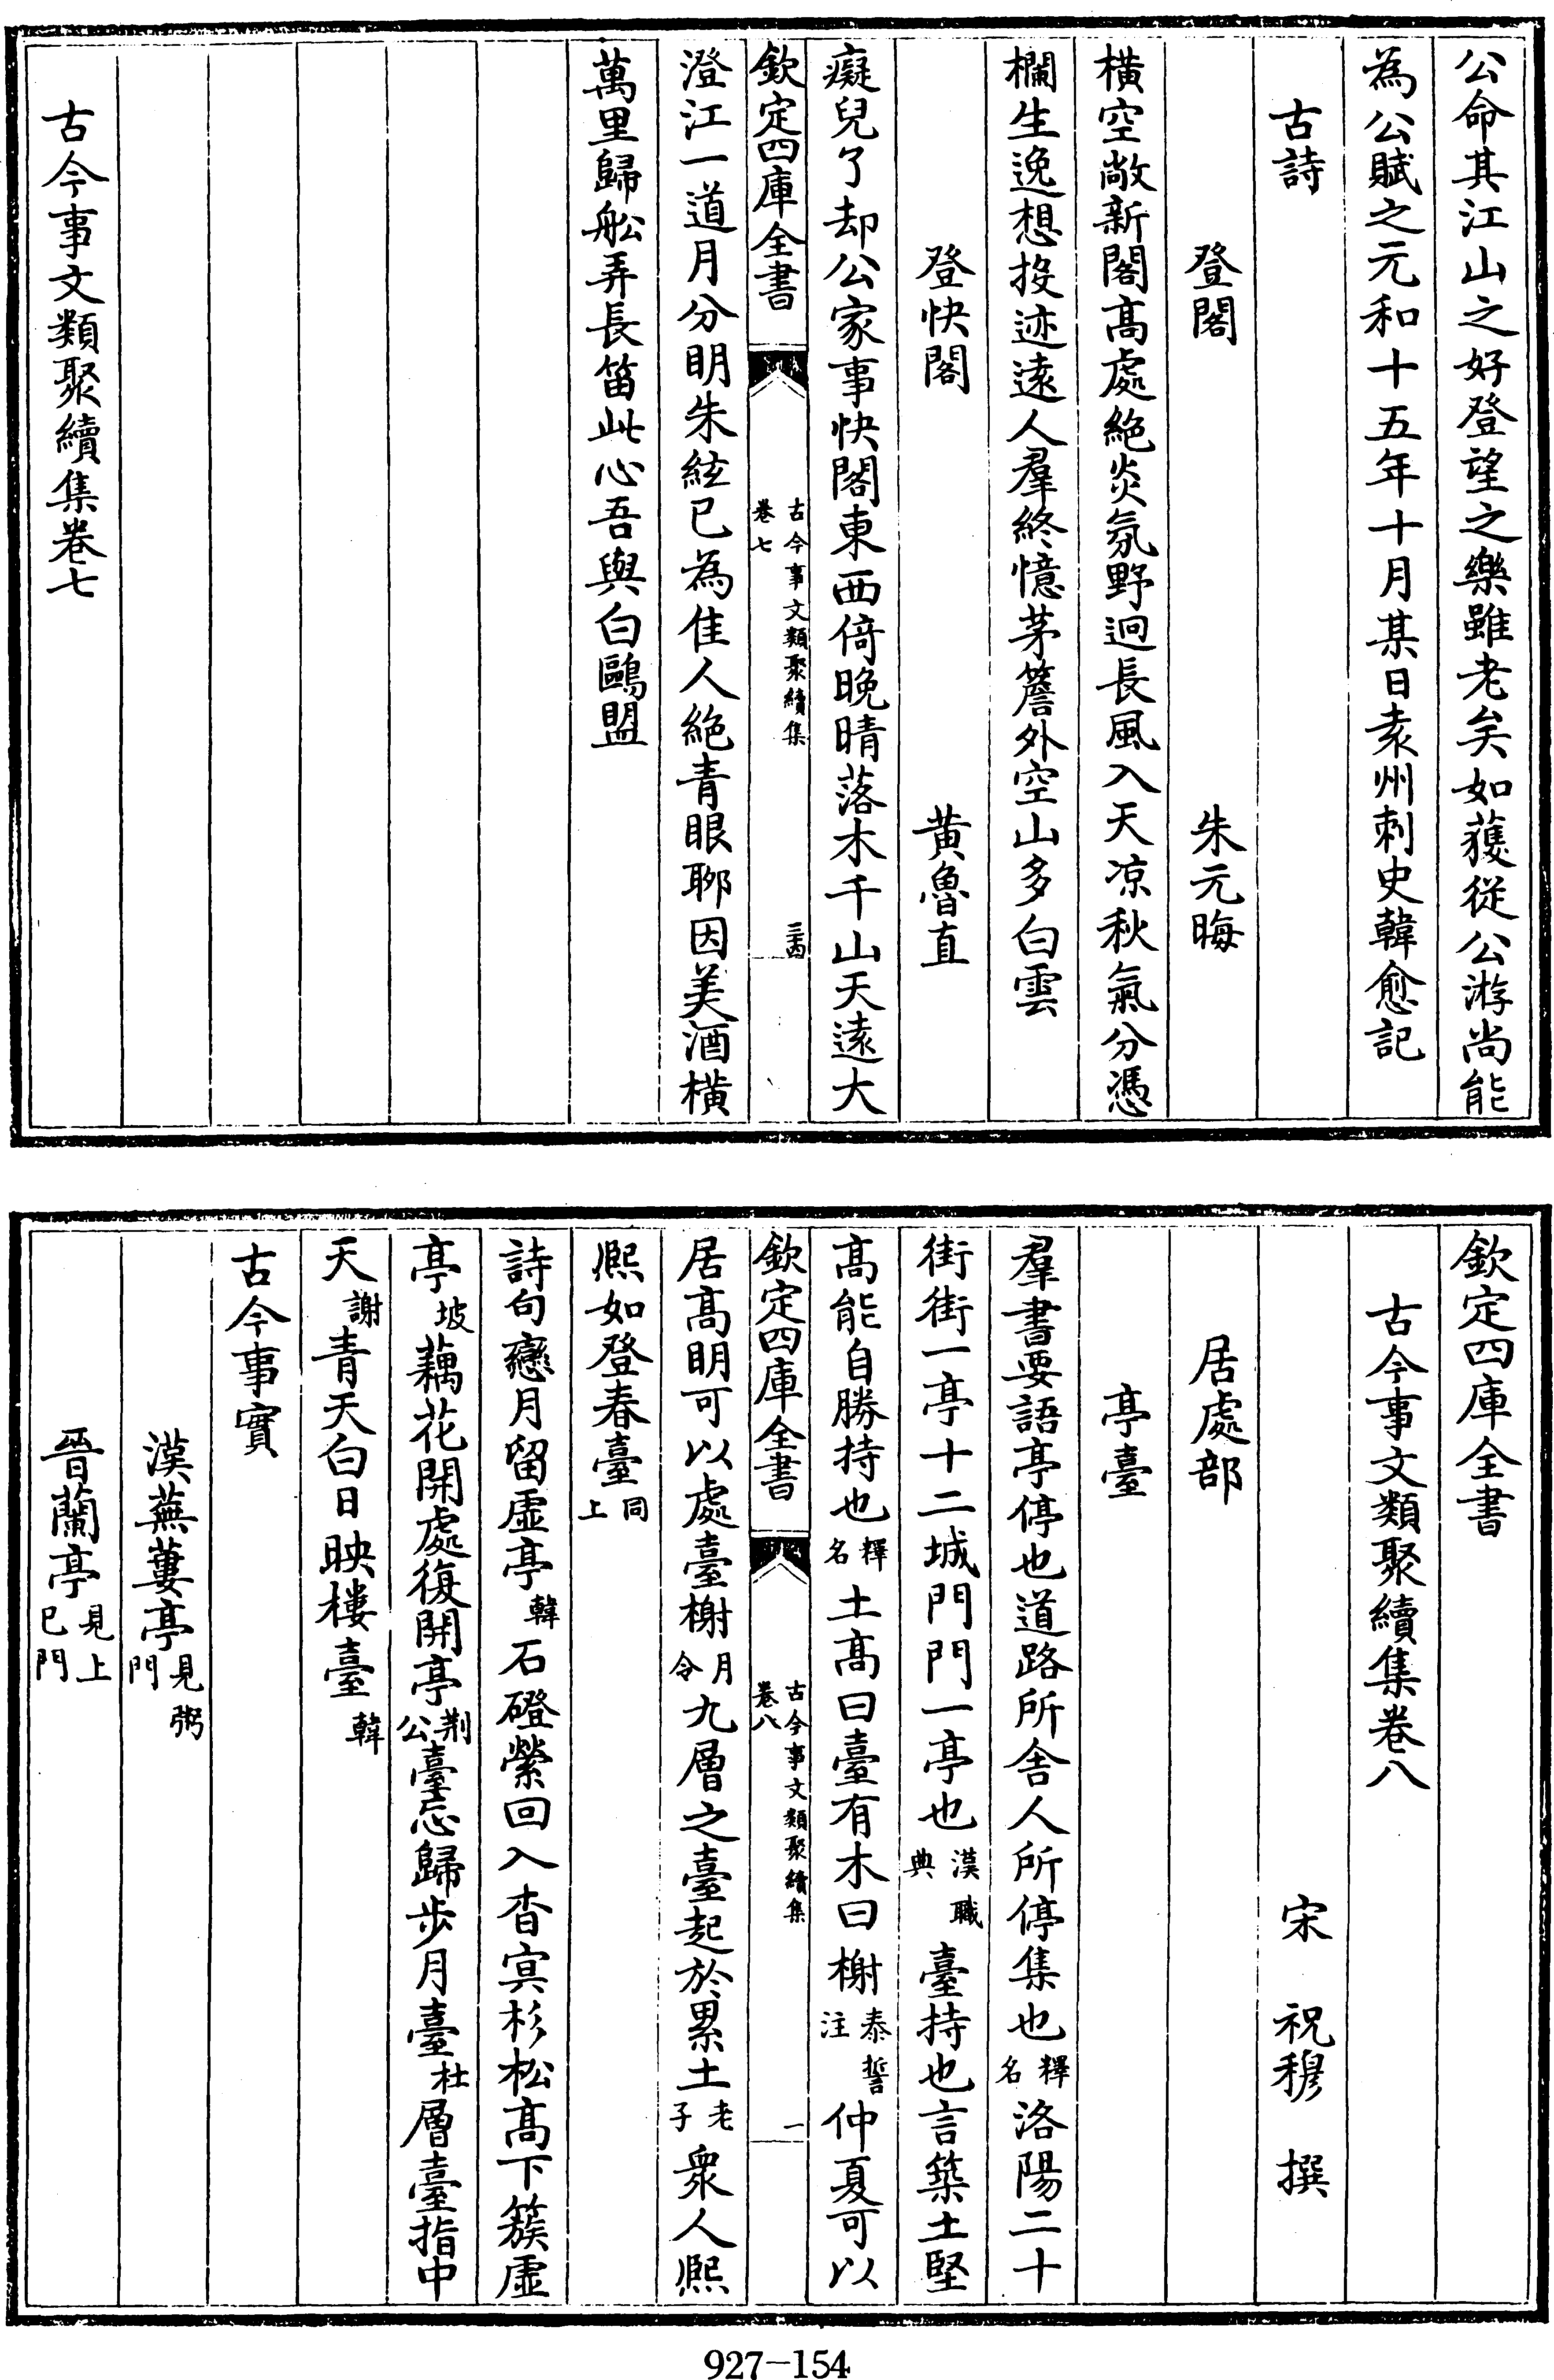 公命其江山之好登望之樂雖老矣如獲從公游尚能
為公賦之元和十五年十月某日袁州刺史韓愈記
古詩
登閣　朱元晦
橫空敞新閣髙處絶炎氛野迥長風入天凉秋氣分憑
欄生逸想投迹逺人羣終憶茅簷外空山多白雲
登快閣　黄魯直
癡兒了却公家事快閣東西倚晚晴落木千山天逺大
欽定四庫全書　古今事文類聚續集卷七　三十四
澄江一道月分明朱絃已為佳人絶青眼聊因美酒橫
萬里歸舩弄長笛此心吾與白鷗盟
古今事文類聚續集卷七
欽定四庫全書
古今事文類聚續集卷八
宋　祝穆　撰
居處部
亭臺
羣書要語亭停也道路所舍人所停集也釋名洛陽二十
街街一亭十二城門門一亭也漢職典臺持也言築土堅
髙能自勝持也釋名土髙曰臺有木曰榭泰誓注仲夏可以
欽定四庫全書　古今事文類聚續集卷八　一
居髙明可以處臺榭月令九層之臺起於累土老子衆人熈
熈如登春臺同上
詩句戀月留虛亭韓石磴縈回入杳㝠杉松髙下簇虛
亭坡藕花開處復開亭荆公臺忘歸步月臺杜層臺指中
天謝青天白日映樓臺韓
古今事實
漢蕪蔞亭見粥門
晉蘭亭見上巳門
927-154